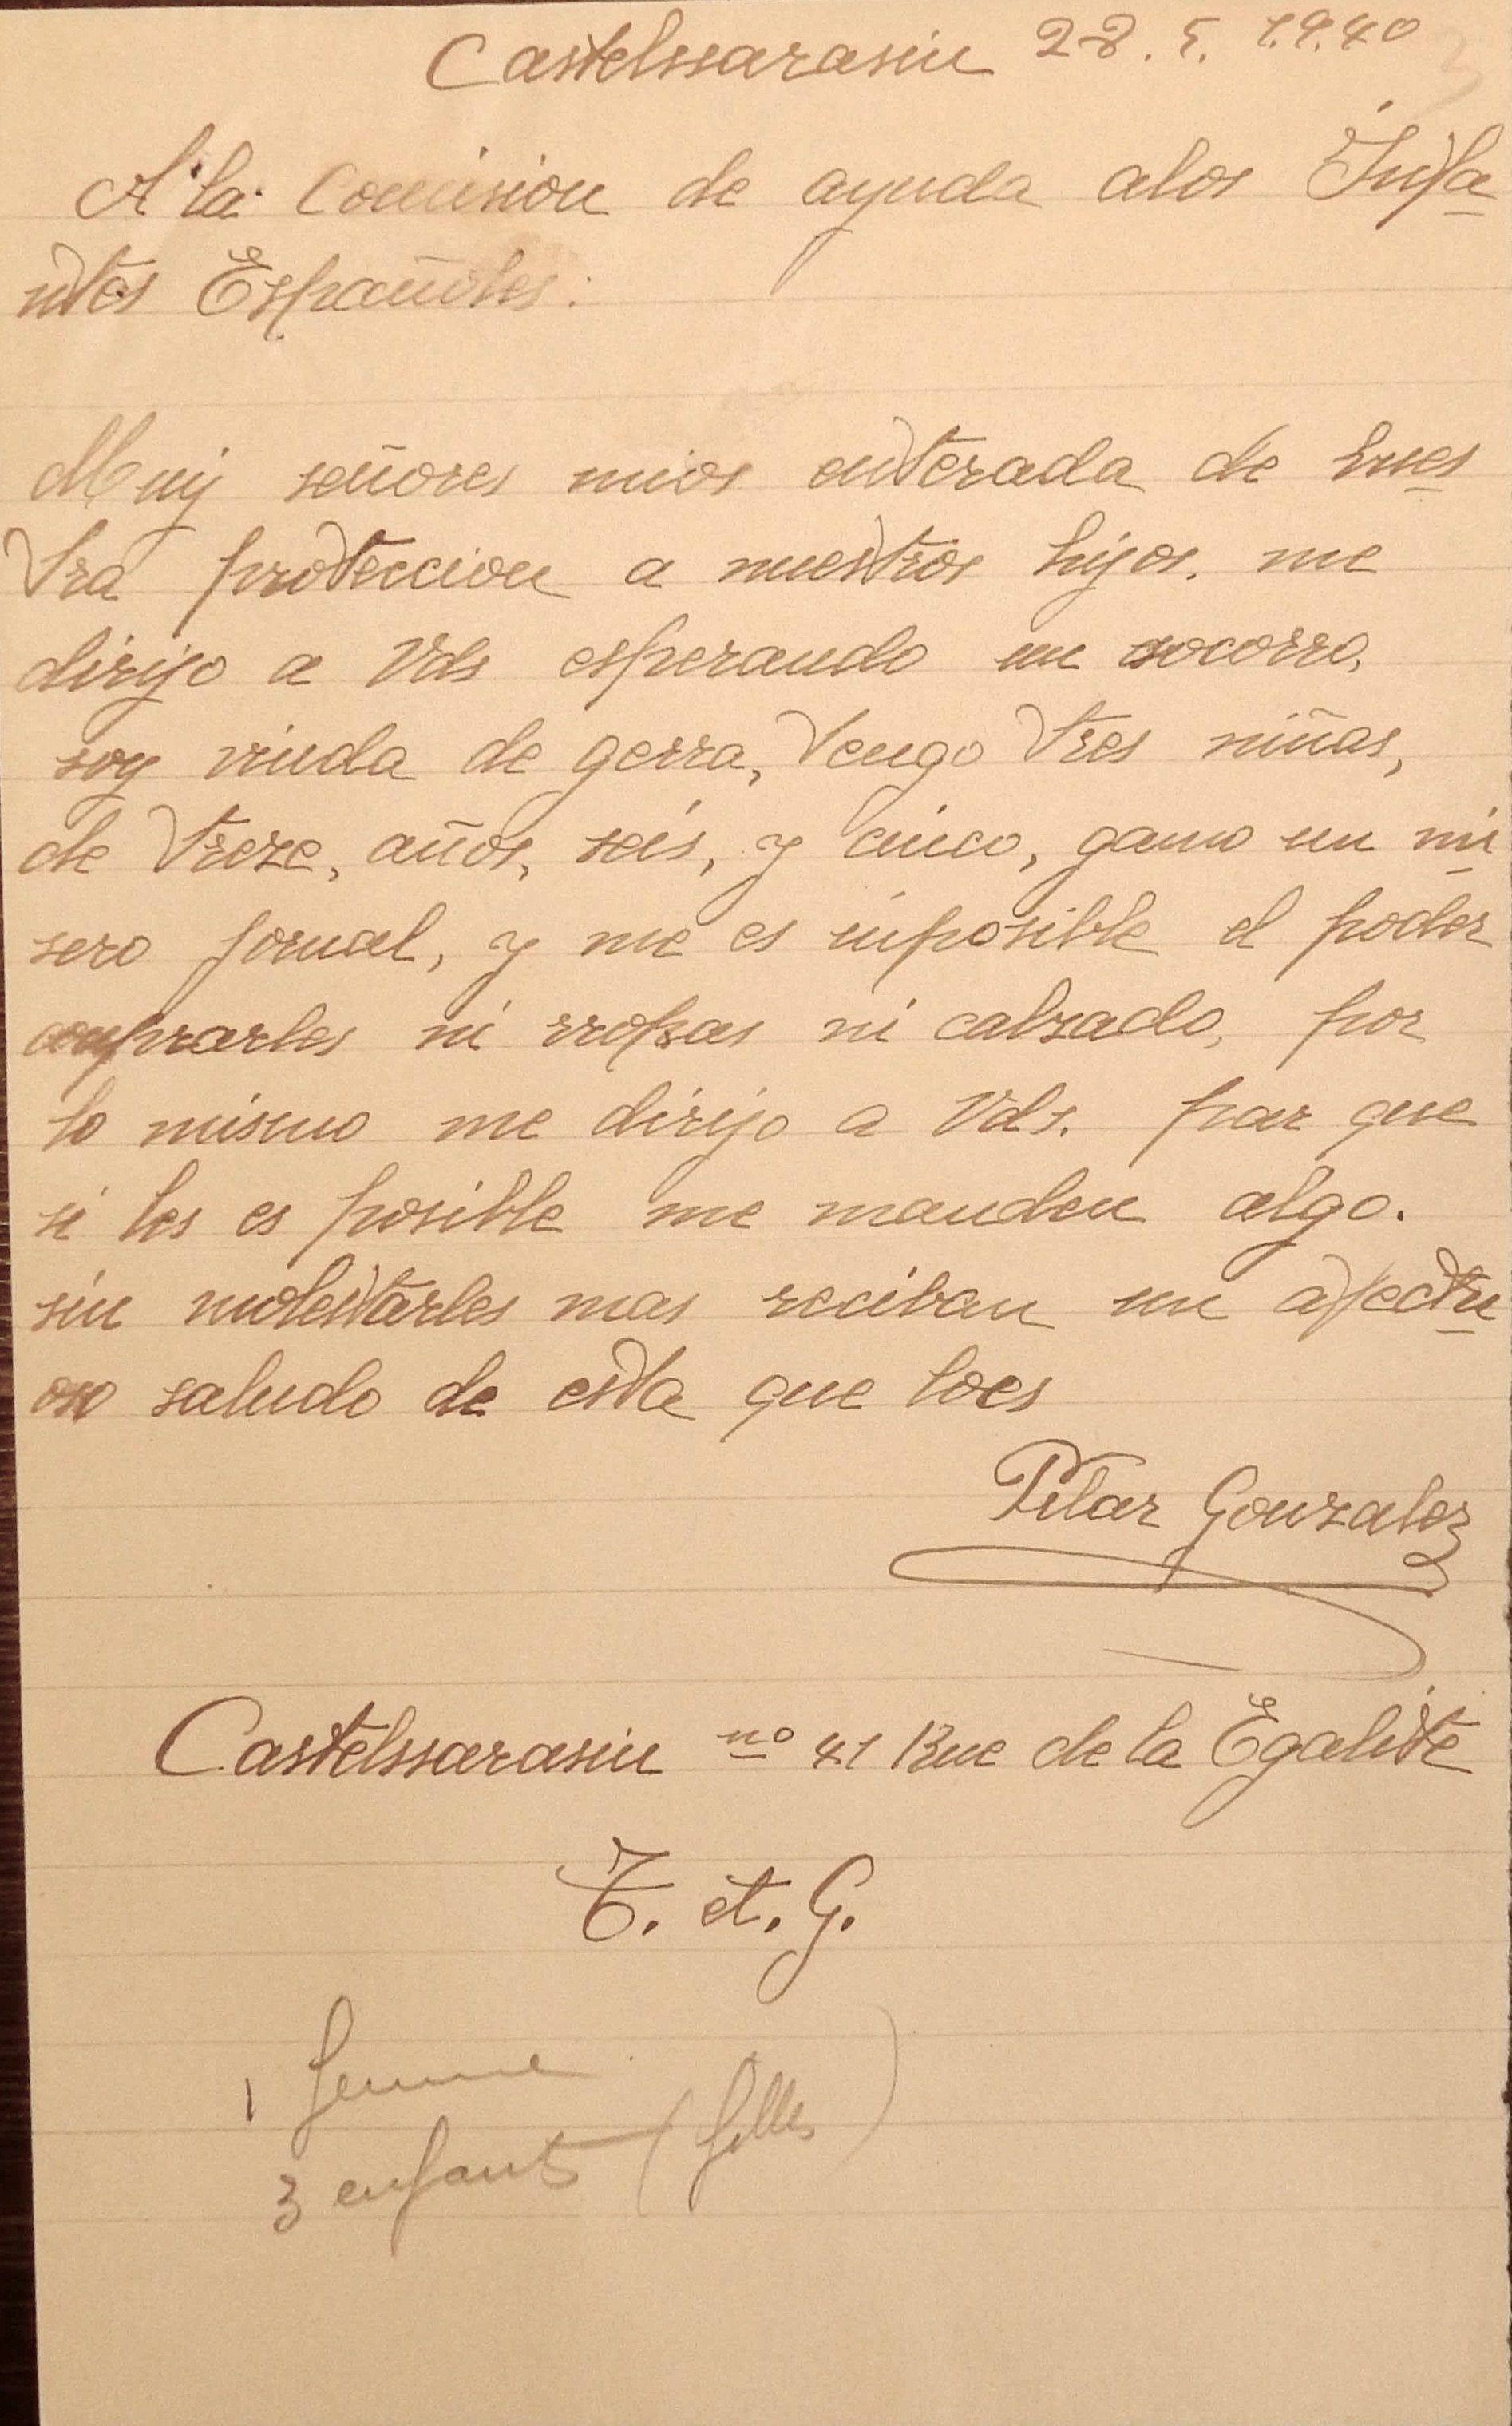 Castelssarasin 28. 5. 1940
A la Comision de ayuda alos Infa
ntes Españoles:
Muy señores mios enterada de bues
tra proteccion a nuestros hijos. me
dirijo a Vds esperando un socorro,
soy viuda de gerra, tengo tres niñas,
de treze, años, seis, y cinco, gano un mi
sero jornal, y me es inposible el poder
conprarles ni rropas ni calzado, por
lo mismo me dirijo a Vds. par que
si les es posible me manden algo.
sin molestarles mas reciban un afectu
oso saludo de esta que loes
Pilar Gonzalez
Castelssarasin nº 41 Rue de la Egalité
T. et. G.
1 femme
3 enfants (filles)